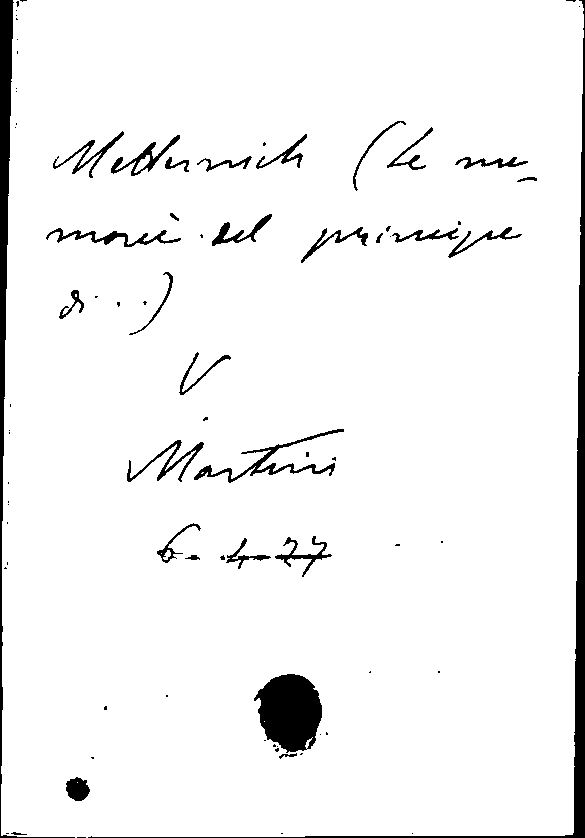 Metternich (Le me-
morie del principe
di...)
V
Martini
6-4-77